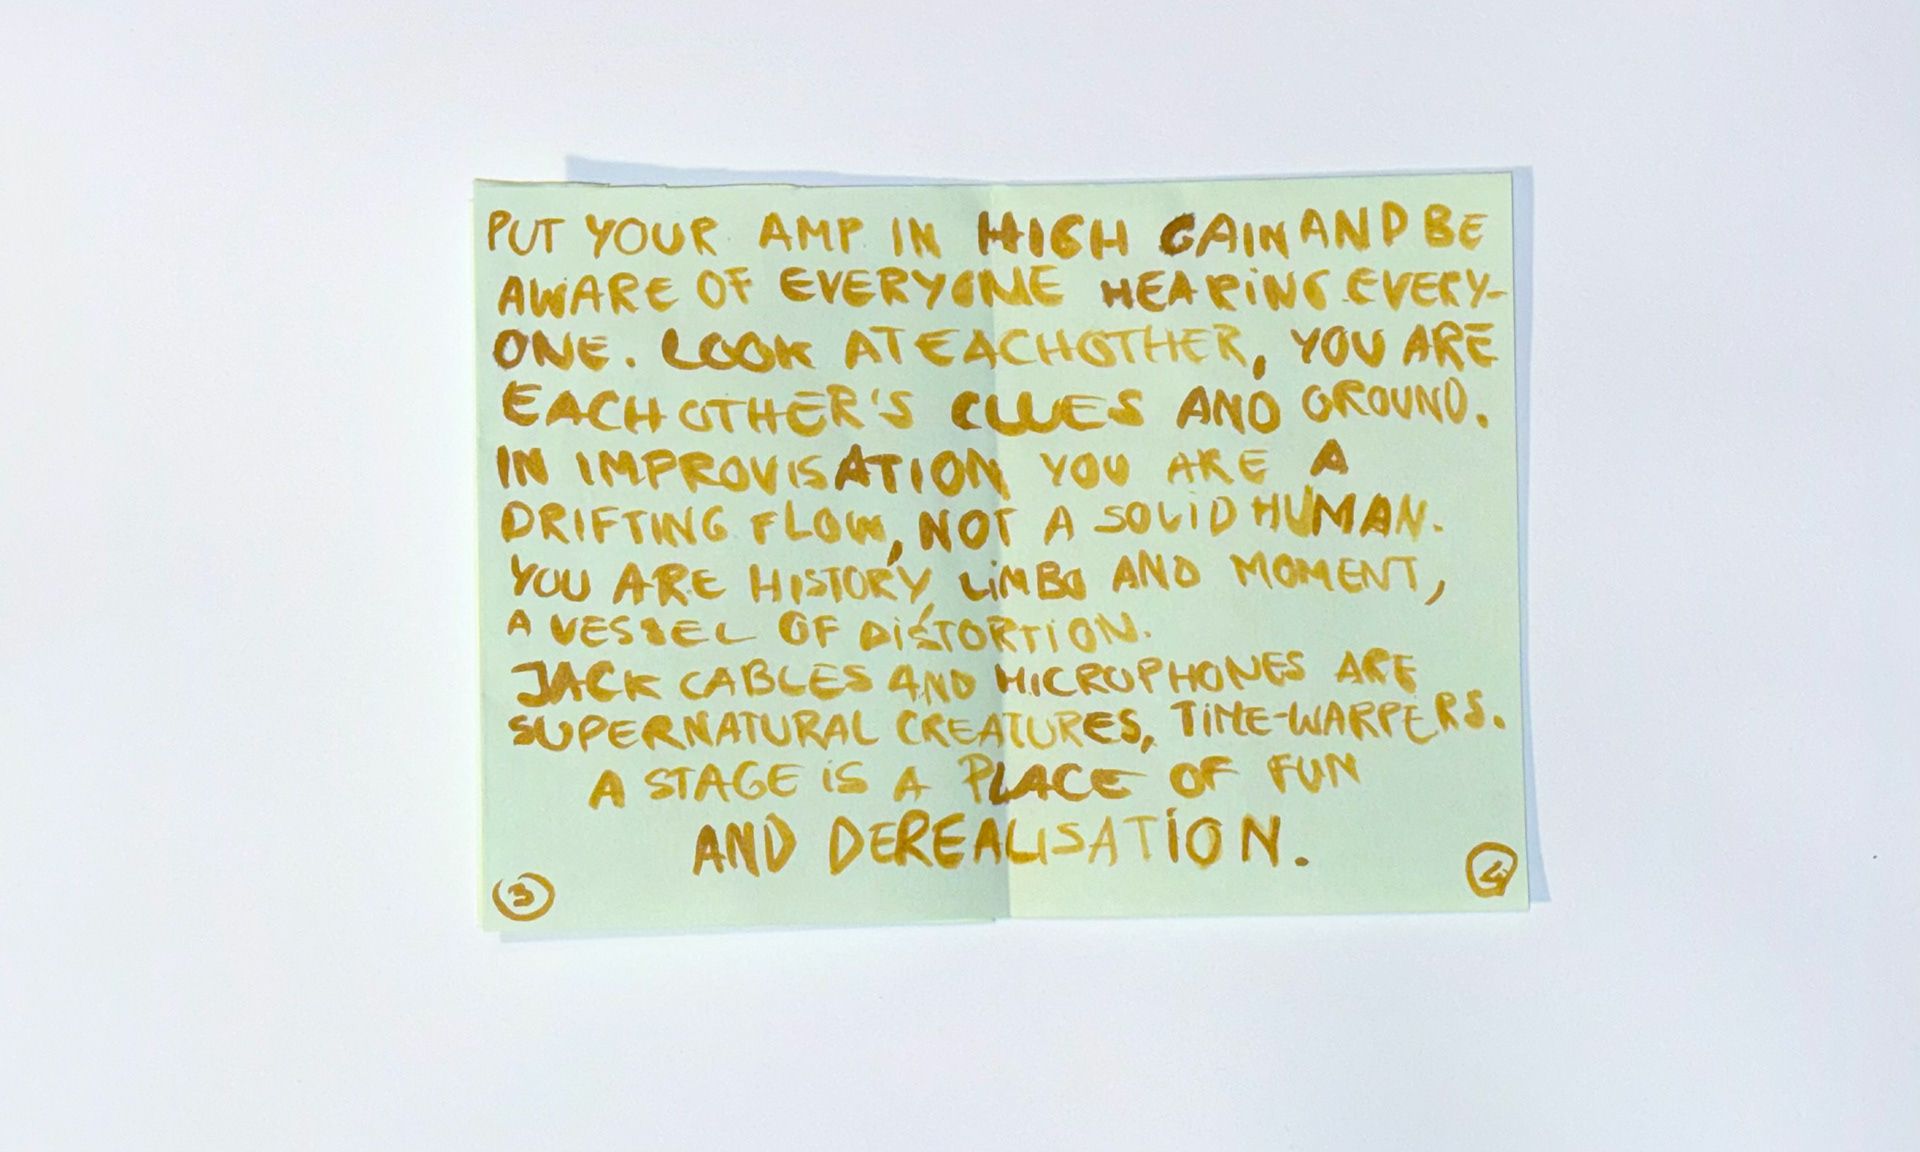 PUT YOUR AMP IN HIGH GAIN AND BE
AWARE OF EVERYONE HEARING EVERY-
ONE. LOOK AT EACHOTHER, YOU ARE
EACHOTHER'S CLUES AND GROUND.
IN IMPROVISATION YOU ARE A
DRIFTING FLOW, NOT A SOLID HUMAN.
YOU ARE HISTORY, LIMBO AND MOMENT,
A VESSEL OF DISTORTION.
JACK CABLES AND MICROPHONES ARE
SUPERNATURAL CREATURES, TIME-WARPERS.
A STAGE IS A PLACE OF FUN
AND DEREALISATION.
3
4